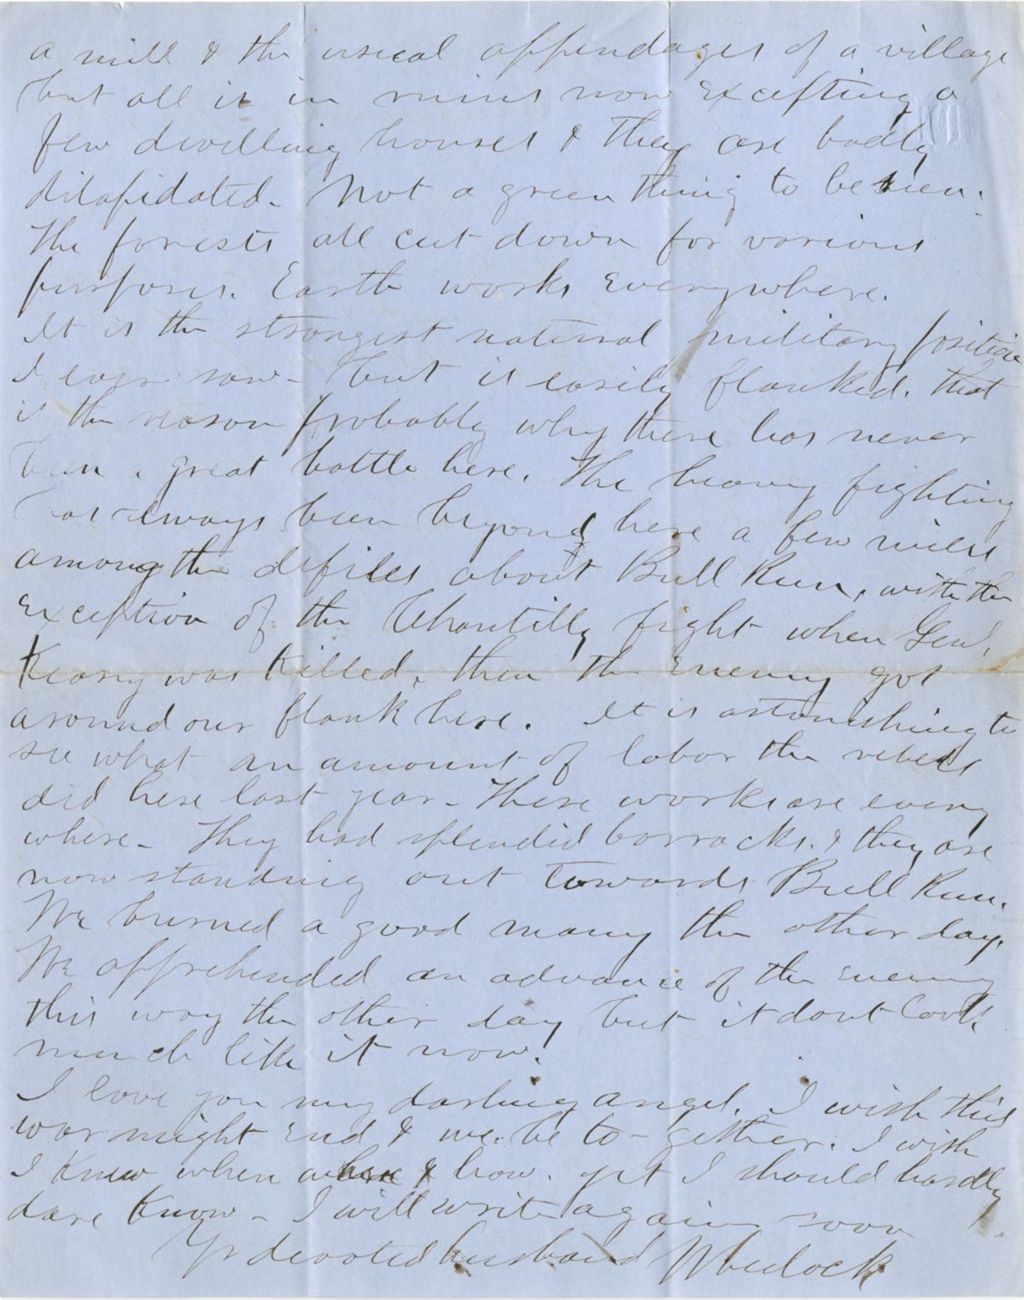 a mill & the usual appendages of a village
but all is in ruins now excepting a
few dwelling houses & they are badly
dilapidated. Not a green thing to be seen.
The forests all cut down for various
purposes. Earth works everywhere.
It is the strongest natural military position
I ever saw - but is easily flanked. that
is the reason probably why there has never
been a great battle here. The heavy fighting
has always been beyond here a few miles
among the defiles about Bull Run, with the
exception of the Chantilly fight when Genl.
Keany was killed, then the enemy got
around our flank here. It is astonishing to
see what an amount of labor the rebels
did here last year - These works are every
where - They had splendid barracks. & they are
now standing out towards Bull Run.
We burned a good many the other day.
We apprehended an advance of the enemy
this way the other day but it dont look
much like it now.
I love you my darling angel. I wish this
war might end & we be to-gether. I wish
I knew when where & how. yet I should hardly
dare know - I will write again soon
Yr devoted husband Wheelock